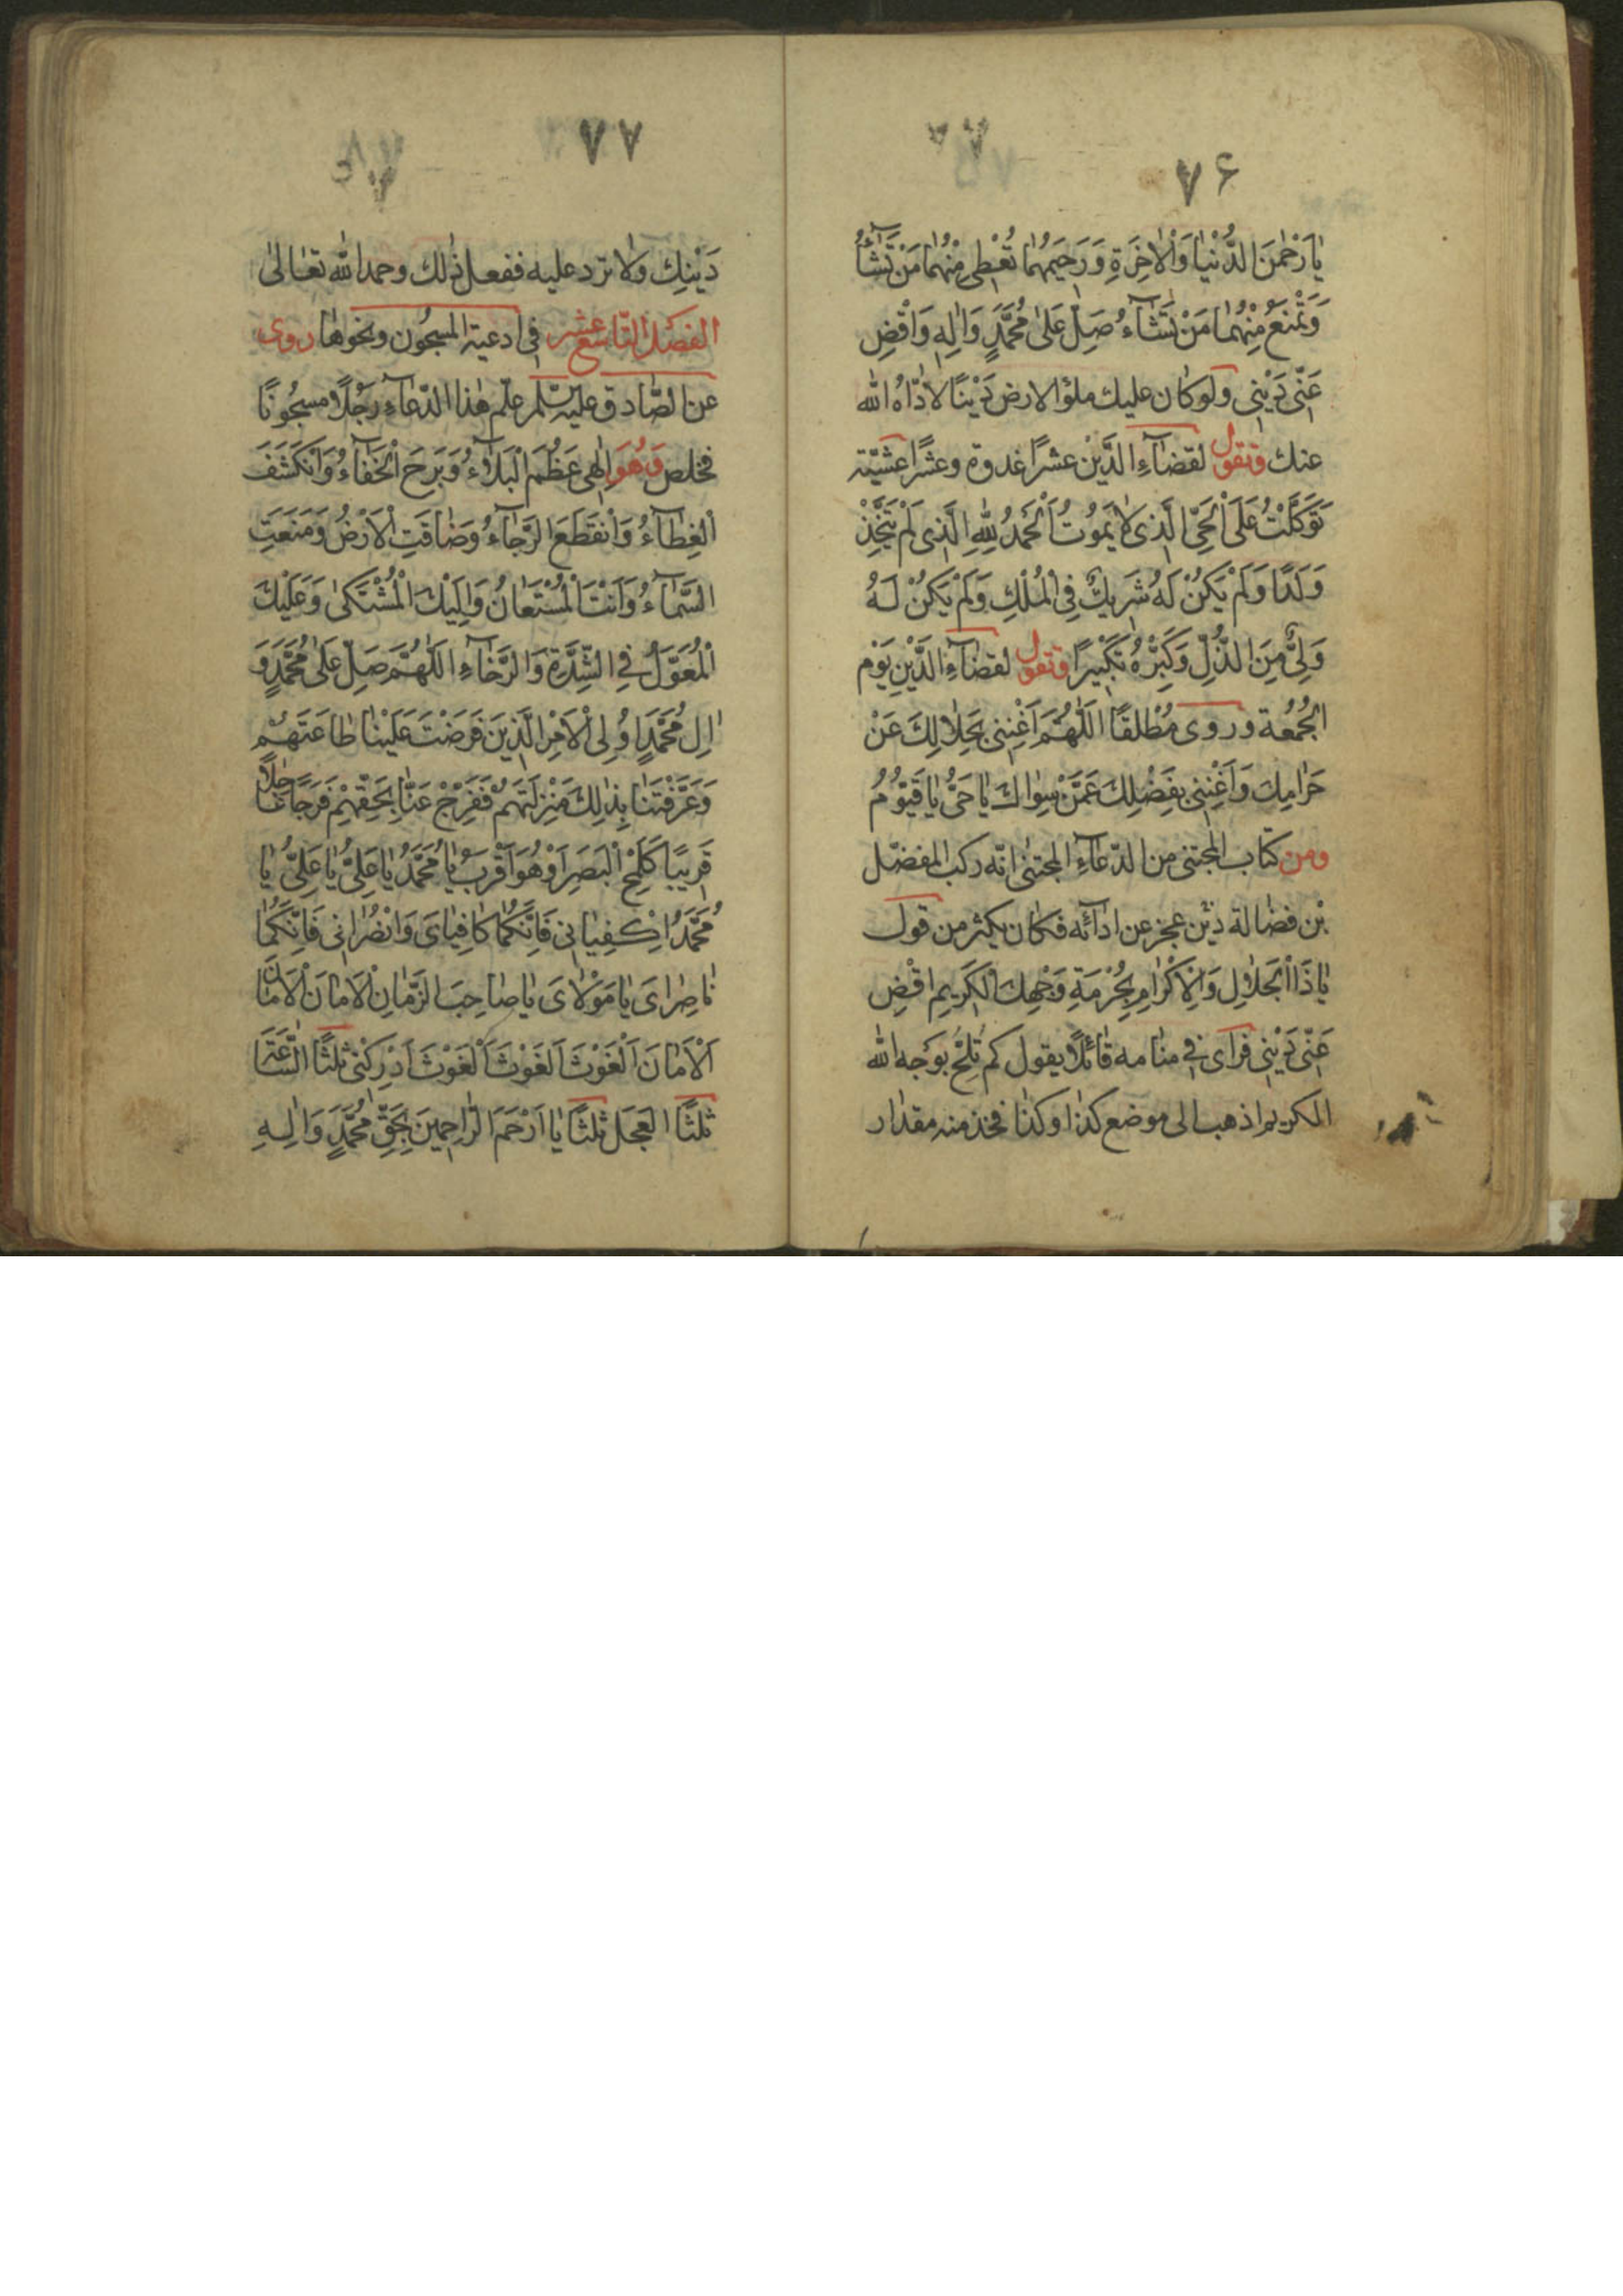 ٧۶
يٰا رَحْمٰنَ الدُّنْيٰا وَالْاٰخِرَةِ وَرَحِيمَهُمٰا تُعْطِي مِنْهُمٰا مَنْ تَشٰآءُ
وَتَمْنَعُ مِنْهُمٰا مَنْ تَشٰآءُ صَلِّ عَلىٰ مُحَمَّدٍ وَاٰلِهِ وَاقْضِ
عَنّى دَيْنِى ولو كان عليك ملؤ الارض دَيْنًا لادّاهُ الله
عنك وتقول لقضآءِ الدَّيْن عشرًا غدوة وعشرًا عشيّة
تَوَكَّلْتُ عَلَى الْحَىِّ الَّذِى لاٰ يَمُوتُ اَلْحَمْدُ لِلّٰهِ الَّذِى لَمْ يَتَّخِذْ
وَلَدًا وَلَمْ يَكُنْ لَهُ شَرِيكٌ فِى الْمُلْكِ وَلَمْ يَكُنْ لَهُ
وَلِىٌّ مِنَ الذُّلِّ وَكَبِّرْهُ تَكْبِيرًا وتقول لقضآءِ الدَّيْنِ يَوْم
الجُمُعة وروى مُطْلقًا اَللّٰهُمَّ اَغْنِنِى بِحَلاٰلِكَ عَنْ
حَرٰامِكَ وَاَغْنِنِى بِفَضْلِكَ عَمَّنْ سِوٰاكَ يٰا حَىُّ يٰا قَيُّومُ
ومن كتاب المجتنى من الدّعآءِ المجتبىٰ انّه ركب المفضّل
بْن فضالة دَيْن عجز عن ادآئه فكان يكثر من قول
يٰا ذَا الْجَلاٰلِ وَالْاِكْرٰامِ بِحُرْمَةِ وَجْهِكَ الْكَرِيمِ اقْضِ
عَنّى دَيْنِى فرأى فى منامه قائلًا يقول كم تُلحّ بوَجه الله
الكريم اذهب الى موضع كذا وكذا فخذ منه مقدار
٧٧
دَيْنِك ولا تزد عليه ففعل ذٰلك وحمد الله تعالىٰ
الفصل التّاسع عشر فى ادعية المسجُون ونحوها روى
عن الصّادق عليه السّلم علّم هٰذا الدّعآءِ رَجُلًا مسجُونًا
فخلص وَهُوَ اِلٰهِى عَظُمَ الْبَلآٰءُ وَبَرِحَ الْخَفٰآءُ وَانْكَشَفَ
الْغِطٰآءُ وَانْقَطَعَ الرَّجٰآءُ وَضٰاقَتِ الْاَرْضُ وَمَنَعَتِ
السَّمٰآءُ وَاَنْتَ الْمُسْتَعٰانُ وَاِلَيْكَ الْمُشْتَكىٰ وَعَلَيْكَ
الْمُعَوَّلُ فِى الشِّدَّةِ وَالرَّخٰآءِ اَللّٰهُمَّ صَلِّ عَلىٰ مُحَمَّدٍ وَ
اٰلِ مُحَمَّدٍ اُولِى الْاَمْرِ الَّذِينَ فَرَضْتَ عَلَيْنٰا طٰاعَتَهُمْ
وَعَرَّفْتَنٰا بِذٰلِكَ مَنْزِلَتَهُمْ فَفَرِّجْ عَنّٰا بِحَقِّهِمْ فَرَجًا عٰاجِلًا
قَرِيبًا كَلَمْحِ الْبَصَرِ اَوْ هُوَ اَقْرَبُ يٰا مُحَمَّدُ يٰا عَلِىُّ يٰا عَلِىُّ يٰا
مُحَمَّدُ اِكْفِيٰانِى فَاِنَّكُمٰا كٰافِيٰاىَ وَانْصُرٰانِى فَاِنَّكُمٰا
نٰاصِرٰاىَ يٰا مَوْلاٰىَ يٰا صٰاحِبَ الزَّمٰانِ اَلْاَمٰانَ اَلْاَمٰانَ
اَلْاَمٰانَ اَلْغَوْثَ اَلْغَوْثَ اَلْغَوْثَ اَدْرِكْنِى ثلثًا السّٰاعَةَ
ثلثًا العَجَل ثلثًا يٰا اَرْحَمَ الرّٰاحِمِينَ بِحَقِّ مُحَمَّدٍ وَاٰلِهِ